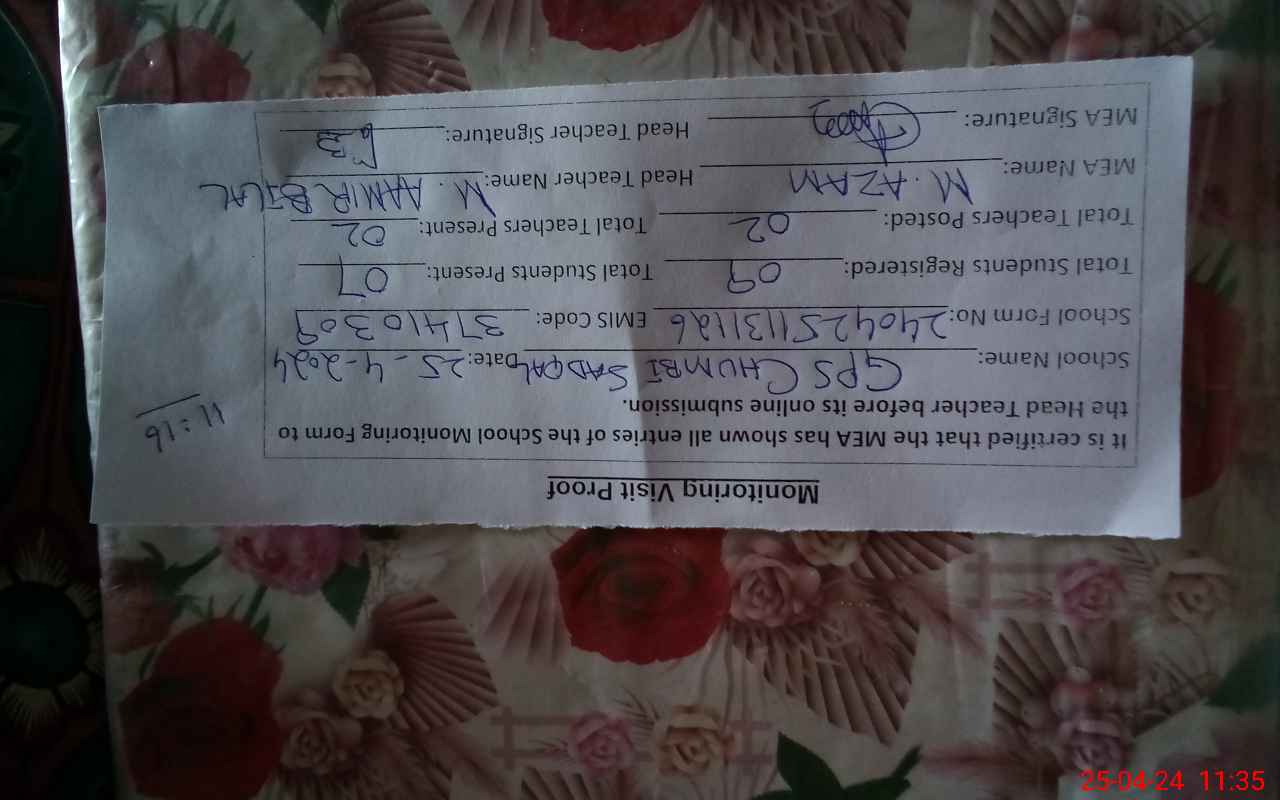 Monitoring Visit Proof
It is certified that the MEA has shown all entries of the School Monitoring Form to
the Head Teacher before its online submission.
11:16
School Name: GPS CHUMBI SADQAL Date: 25-4-2024
School Form No: 2404251131126 EMIS Code: 37410309
Total Students Registered: 09 Total Students Present: 07
Total Teachers Posted: 02 Total Teachers Present: 02
MEA Name: M. AZAM Head Teacher Name: M. AAMIR BILAL
MEA Signature: Head Teacher Signature:
25-04-24 11:35